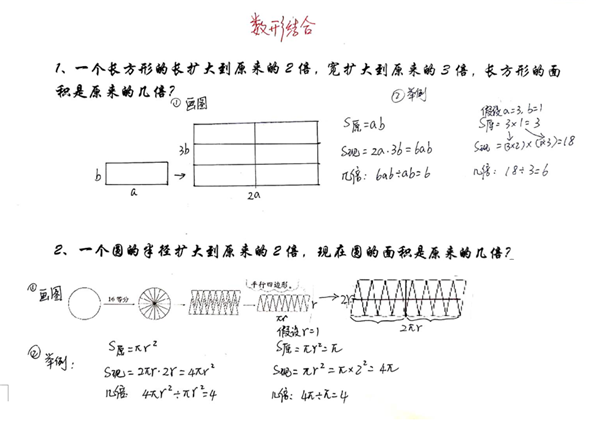 数形结合
1、一个长方形的长扩大到原来的2倍，宽扩大到原来的3倍，长方形的面
积是原来的几倍？
①画图
②举例
b
a
3b
2a
S原=ab
S现=2a·3b=6ab
几倍：6ab÷ab=6
假设a=3，b=1
S原=3×1=3
S现=(3×2)×(1×3)=18
几倍：18÷3=6
2、一个圆的半径扩大到原来的2倍，现在圆的面积是原来的几倍？
①画图
16等分
平行四边形。
r
πr
2r
2πr
②举例：
S原=πr²
S现=2πr·2r=4πr²
几倍：4πr²÷πr²=4
假设r=1
S原=πr²=π
S现=πr²=π×2²=4π
几倍：4π÷π=4